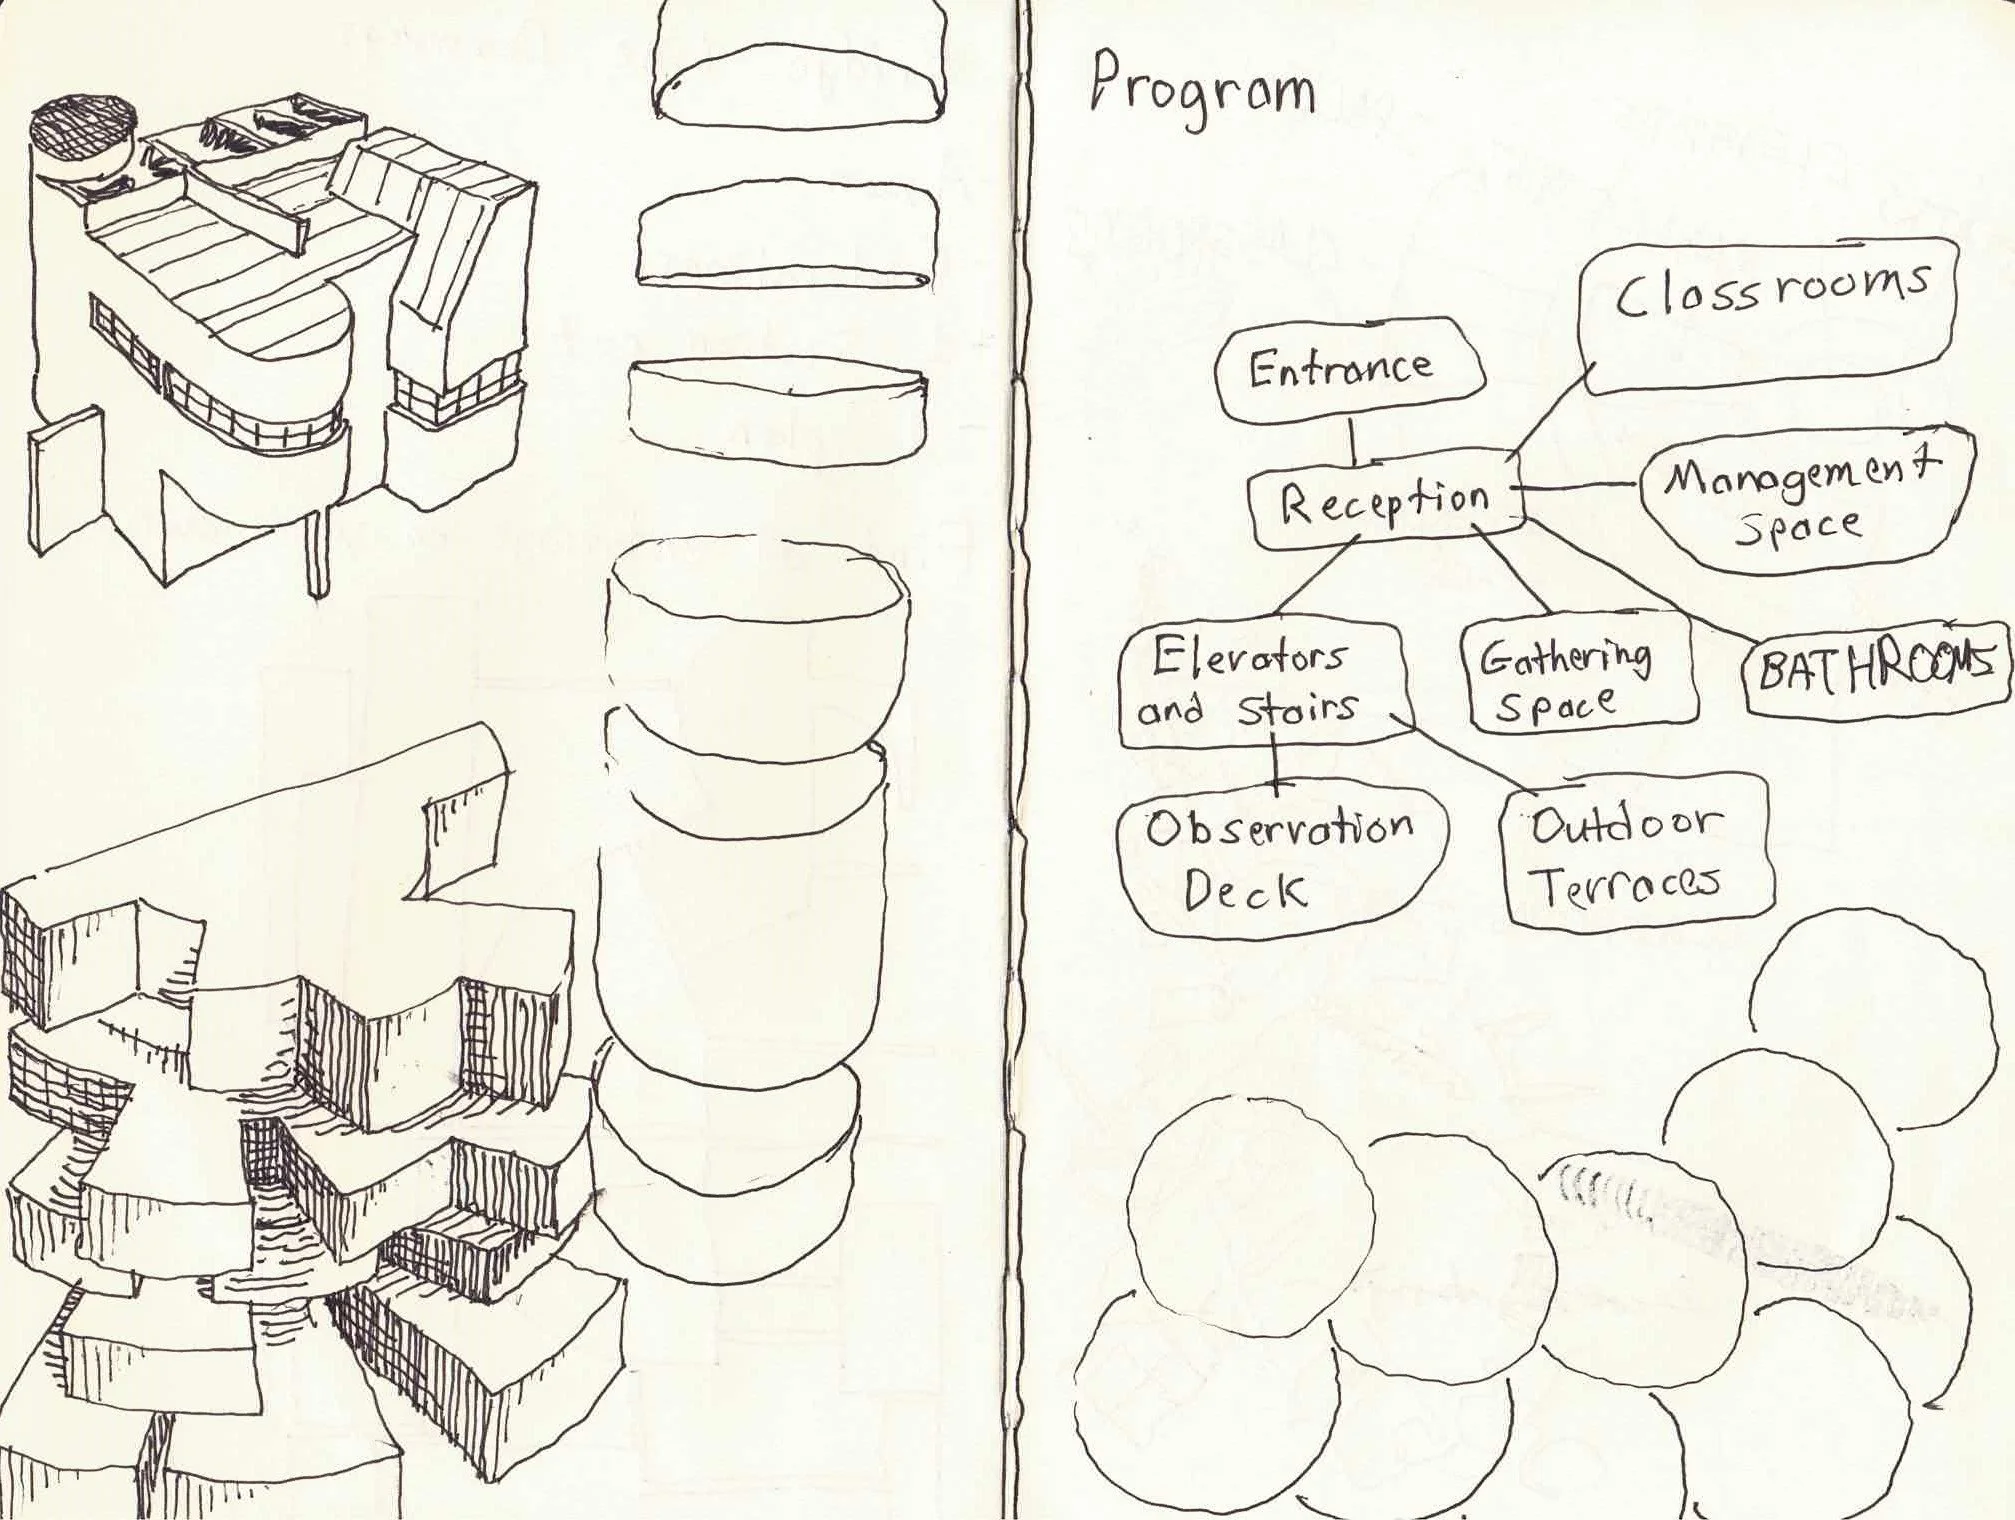 Program
Classrooms
Entrance
Management
Space
Reception
Elevators
and Stairs
Gathering
Space
BATHROOMS
Observation
Deck
Outdoor
Terraces